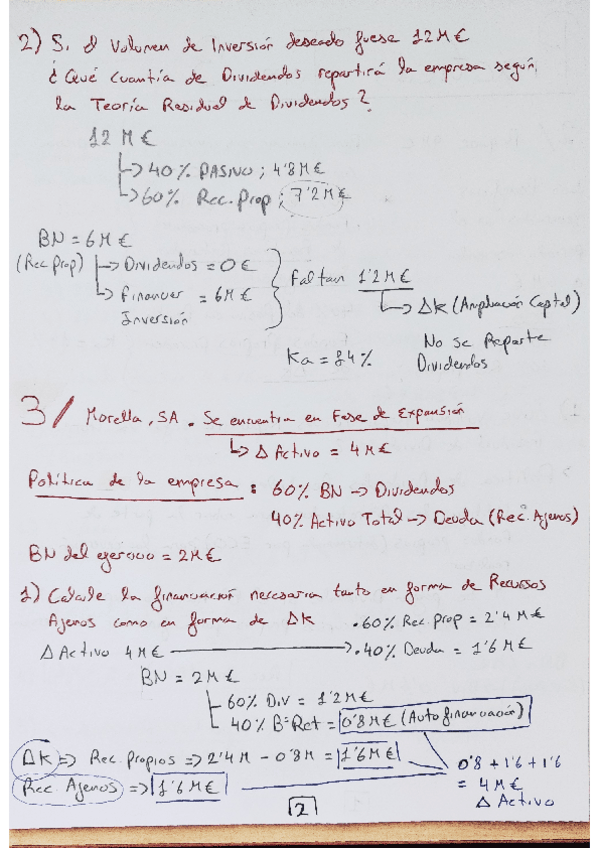 2) Si el Volumen de Inversión deseado fuese 12 M €
¿Qué Cuantía de Dividendos repartirá la empresa según
la Teoría Residual de Dividendos?
12 M €
↳ 40% PASIVO ; 4'8 M €
↳ 60% Rec. Prop ; 7'2 M €
BN = 6 M €
(Rec. Prop) ↳ Dividendos = 0 €
↳ Financiar = 6 M €
Inversión
Faltan 1'2 M €
↳ ΔK (Ampliación Capital)
No se Reparte
Dividendos
Ka = 14%
3/ Morella, SA. Se encuentra en Fase de Expansión
↳ Δ Activo = 4 M €
Política de la empresa : 60% BN → Dividendos
40% Activo Total → Deuda (Rec. Ajenos)
BN del ejercicio = 2 M €
1) Calcule la financiación necesaria tanto en forma de Recursos
Ajenos como en forma de ΔK
· 60% Rec. Prop = 2'4 M €
Δ Activo 4 M € → · 40% Deuda = 1'6 M €
BN = 2 M €
60% Div = 1'2 M €
40% Bº Ret = 0'8 M € (Autofinanciación)
ΔK ⇒ Rec. Propios ⇒ 2'4 M - 0'8 M = 1'6 M €
Rec. Ajenos ⇒ 1'6 M €
0'8 + 1'6 + 1'6
= 4 M €
Δ Activo
2